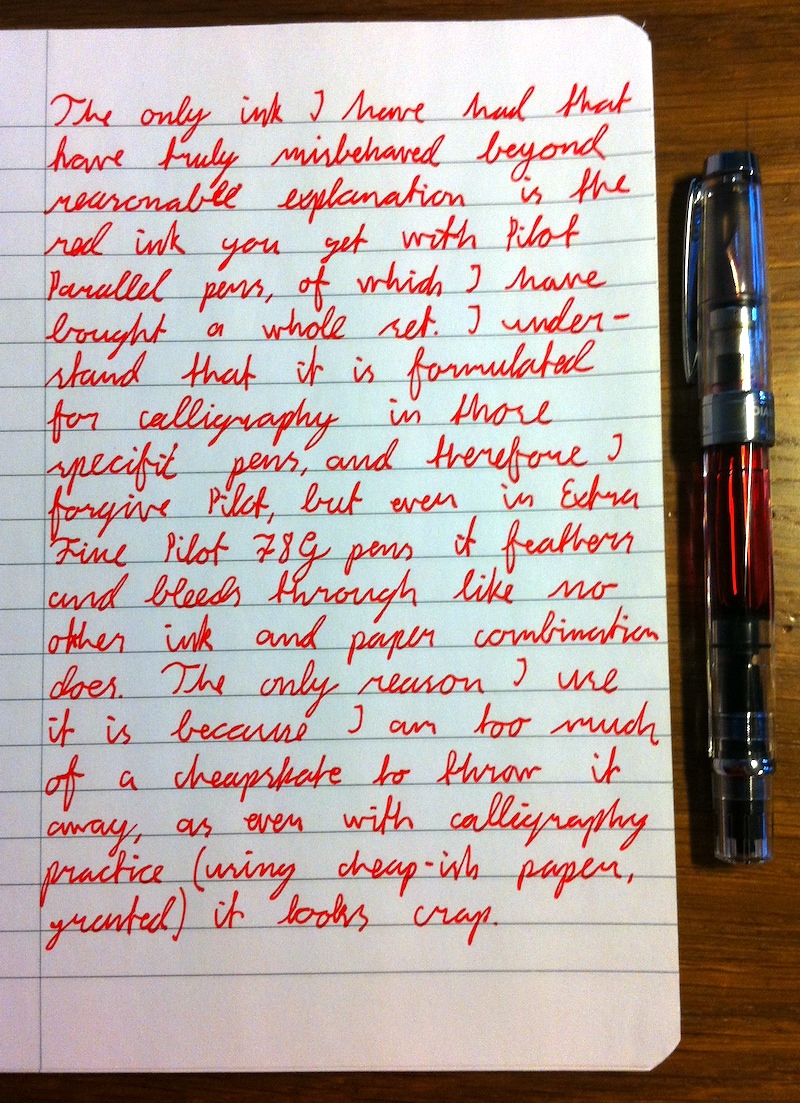 The only ink I have had that
have truly misbehaved beyond
reasonable explanation is the
red ink you get with Pilot
Parallel pens, of which I have
bought a whole set. I under-
stand that it is formulated
for calligraphy in those
specific pens, and therefore I
forgive Pilot, but even in Extra
Fine Pilot 78G pens it feathers
and bleeds through like no
other ink and paper combination
does. The only reason I use
it is because I am too much
of a cheapskate to throw it
away, as even with calligraphy
practice (using cheap-ish paper,
granted) it looks crap.